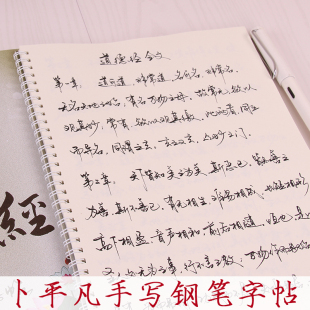 道德经全文
第一章、道可道,非常道。名可名,非常名。
无名天地之始,有名万物之母。故常无,欲以
观其妙,常有,欲以观其徼。此两者,同出
而异名,同谓之玄,玄之又玄,众妙之门。
第二章、天下皆知美之为美,斯恶已。皆知善之
为善,斯不善已。有无相生,难易相成,长短相形,
高下相盈,音声相和,前后相随,恒也。是
处无为之事,行不言之教;万物作
經
卜平凡手写钢笔字帖